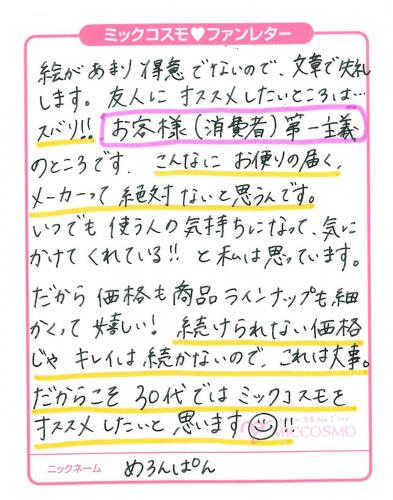 ミックコスモ♥ファンレター
絵があまり得意でないので、文章で失礼
します。友人にオススメしたいところは…
ズバリ!! お客様(消費者)第一主義
のところです。こんなにお便りの届く
メーカーって絶対ないと思うんです。
いつでも使う人の気持ちになって、気に
かけてくれている!! と私は思っています。
だから価格も商品ラインナップも細
かくって嬉しい! 続けられない価格
じゃキレイは続かないので、これは大事。
だからこそ30代ではミックコスモを
オススメしたいと思います☺!!
MICCOSMO
ニックネーム めろんぱん